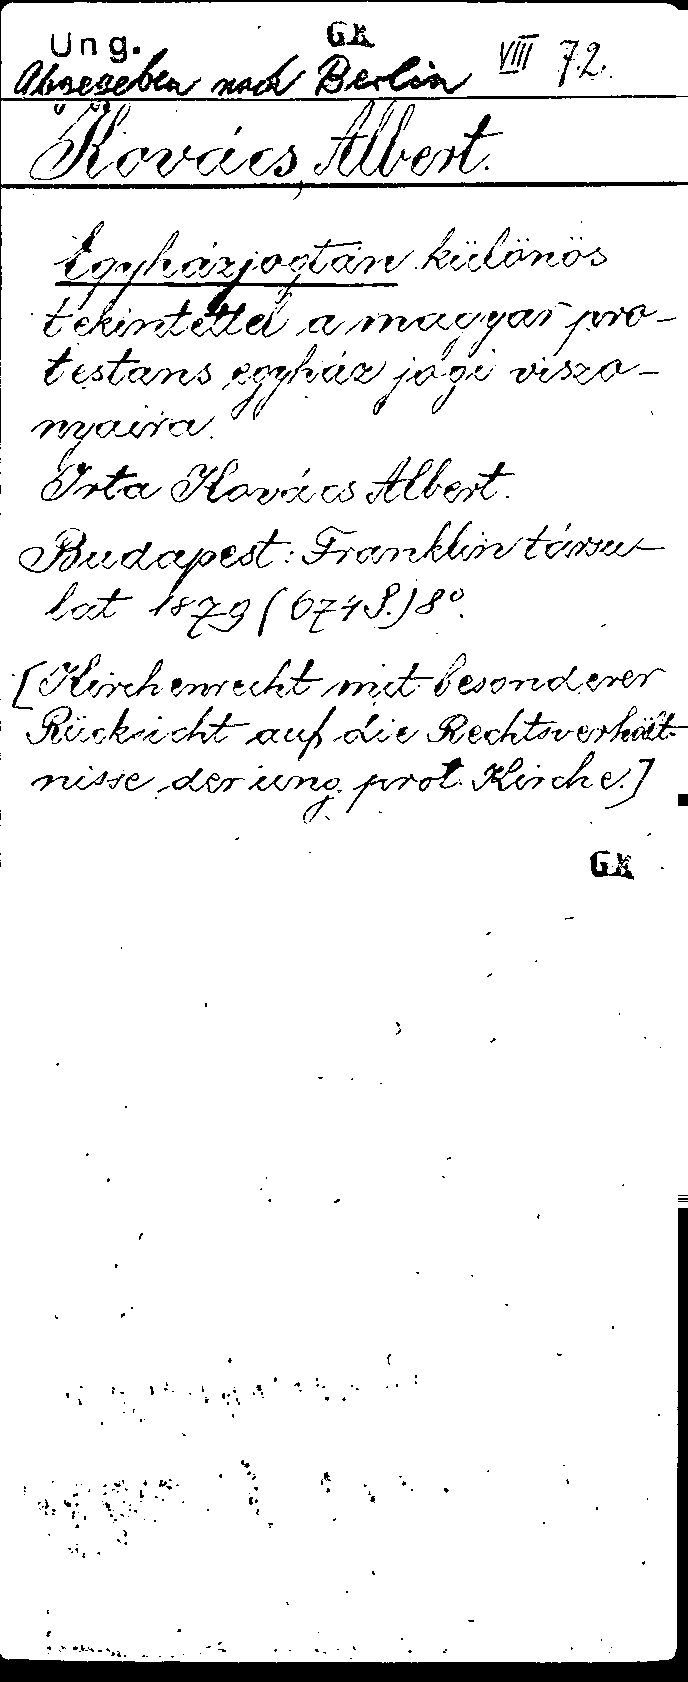 Ung. GK VIII 72.
Abgegeben nach Berlin
Kovács, Albert.
Egyházjogtan különös
tekintettel a magyar pro-
testans egyház jogi viszo-
nyaira.
Irta Kovács Albert.
Budapest: Franklin társu-
lat 1879 (674 S.) 8°.
[Kirchenrecht mit besonderer
Rücksicht auf die Rechtsverhält-
nisse der ung. prot. Kirche.]
GK